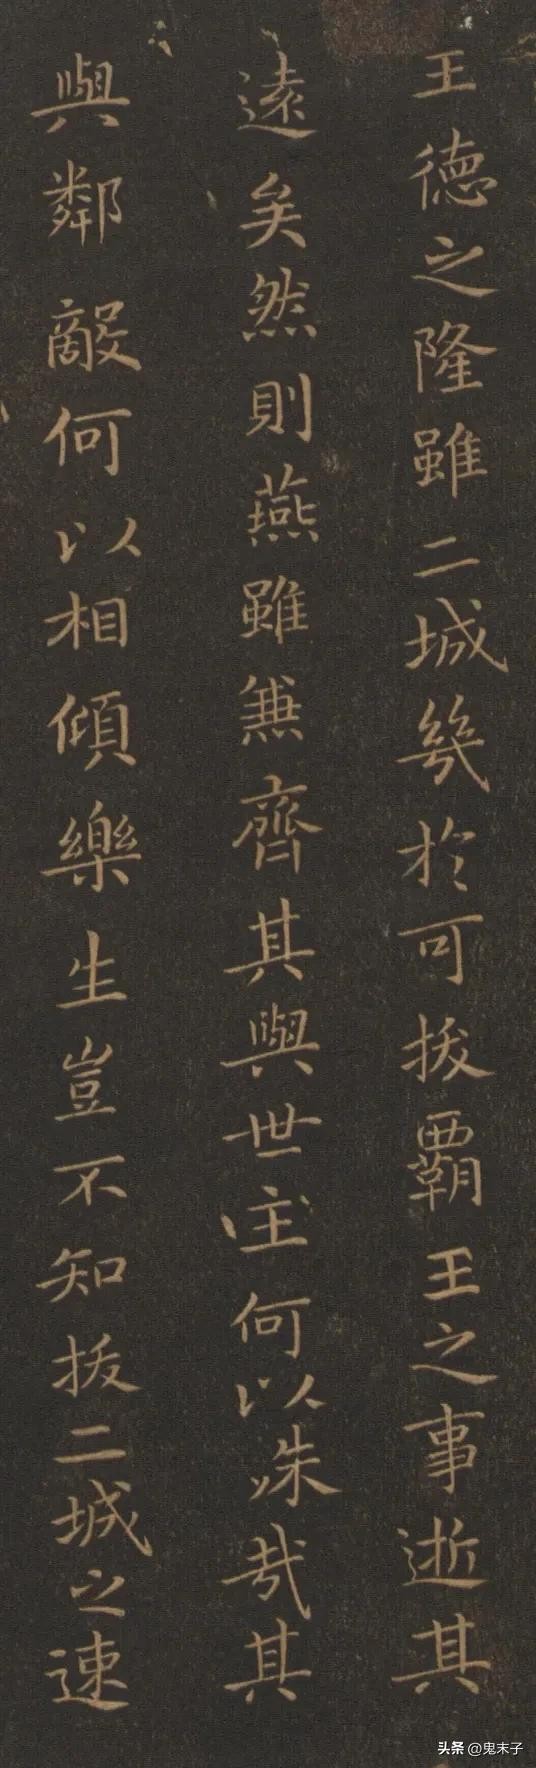 王德之隆雖二城幾於可拔霸王之事逝其
遠矣然則燕雖兼齊其與世主何以殊哉其
與鄰敵何以相傾樂生豈不知拔二城之速
头条 @鬼末子